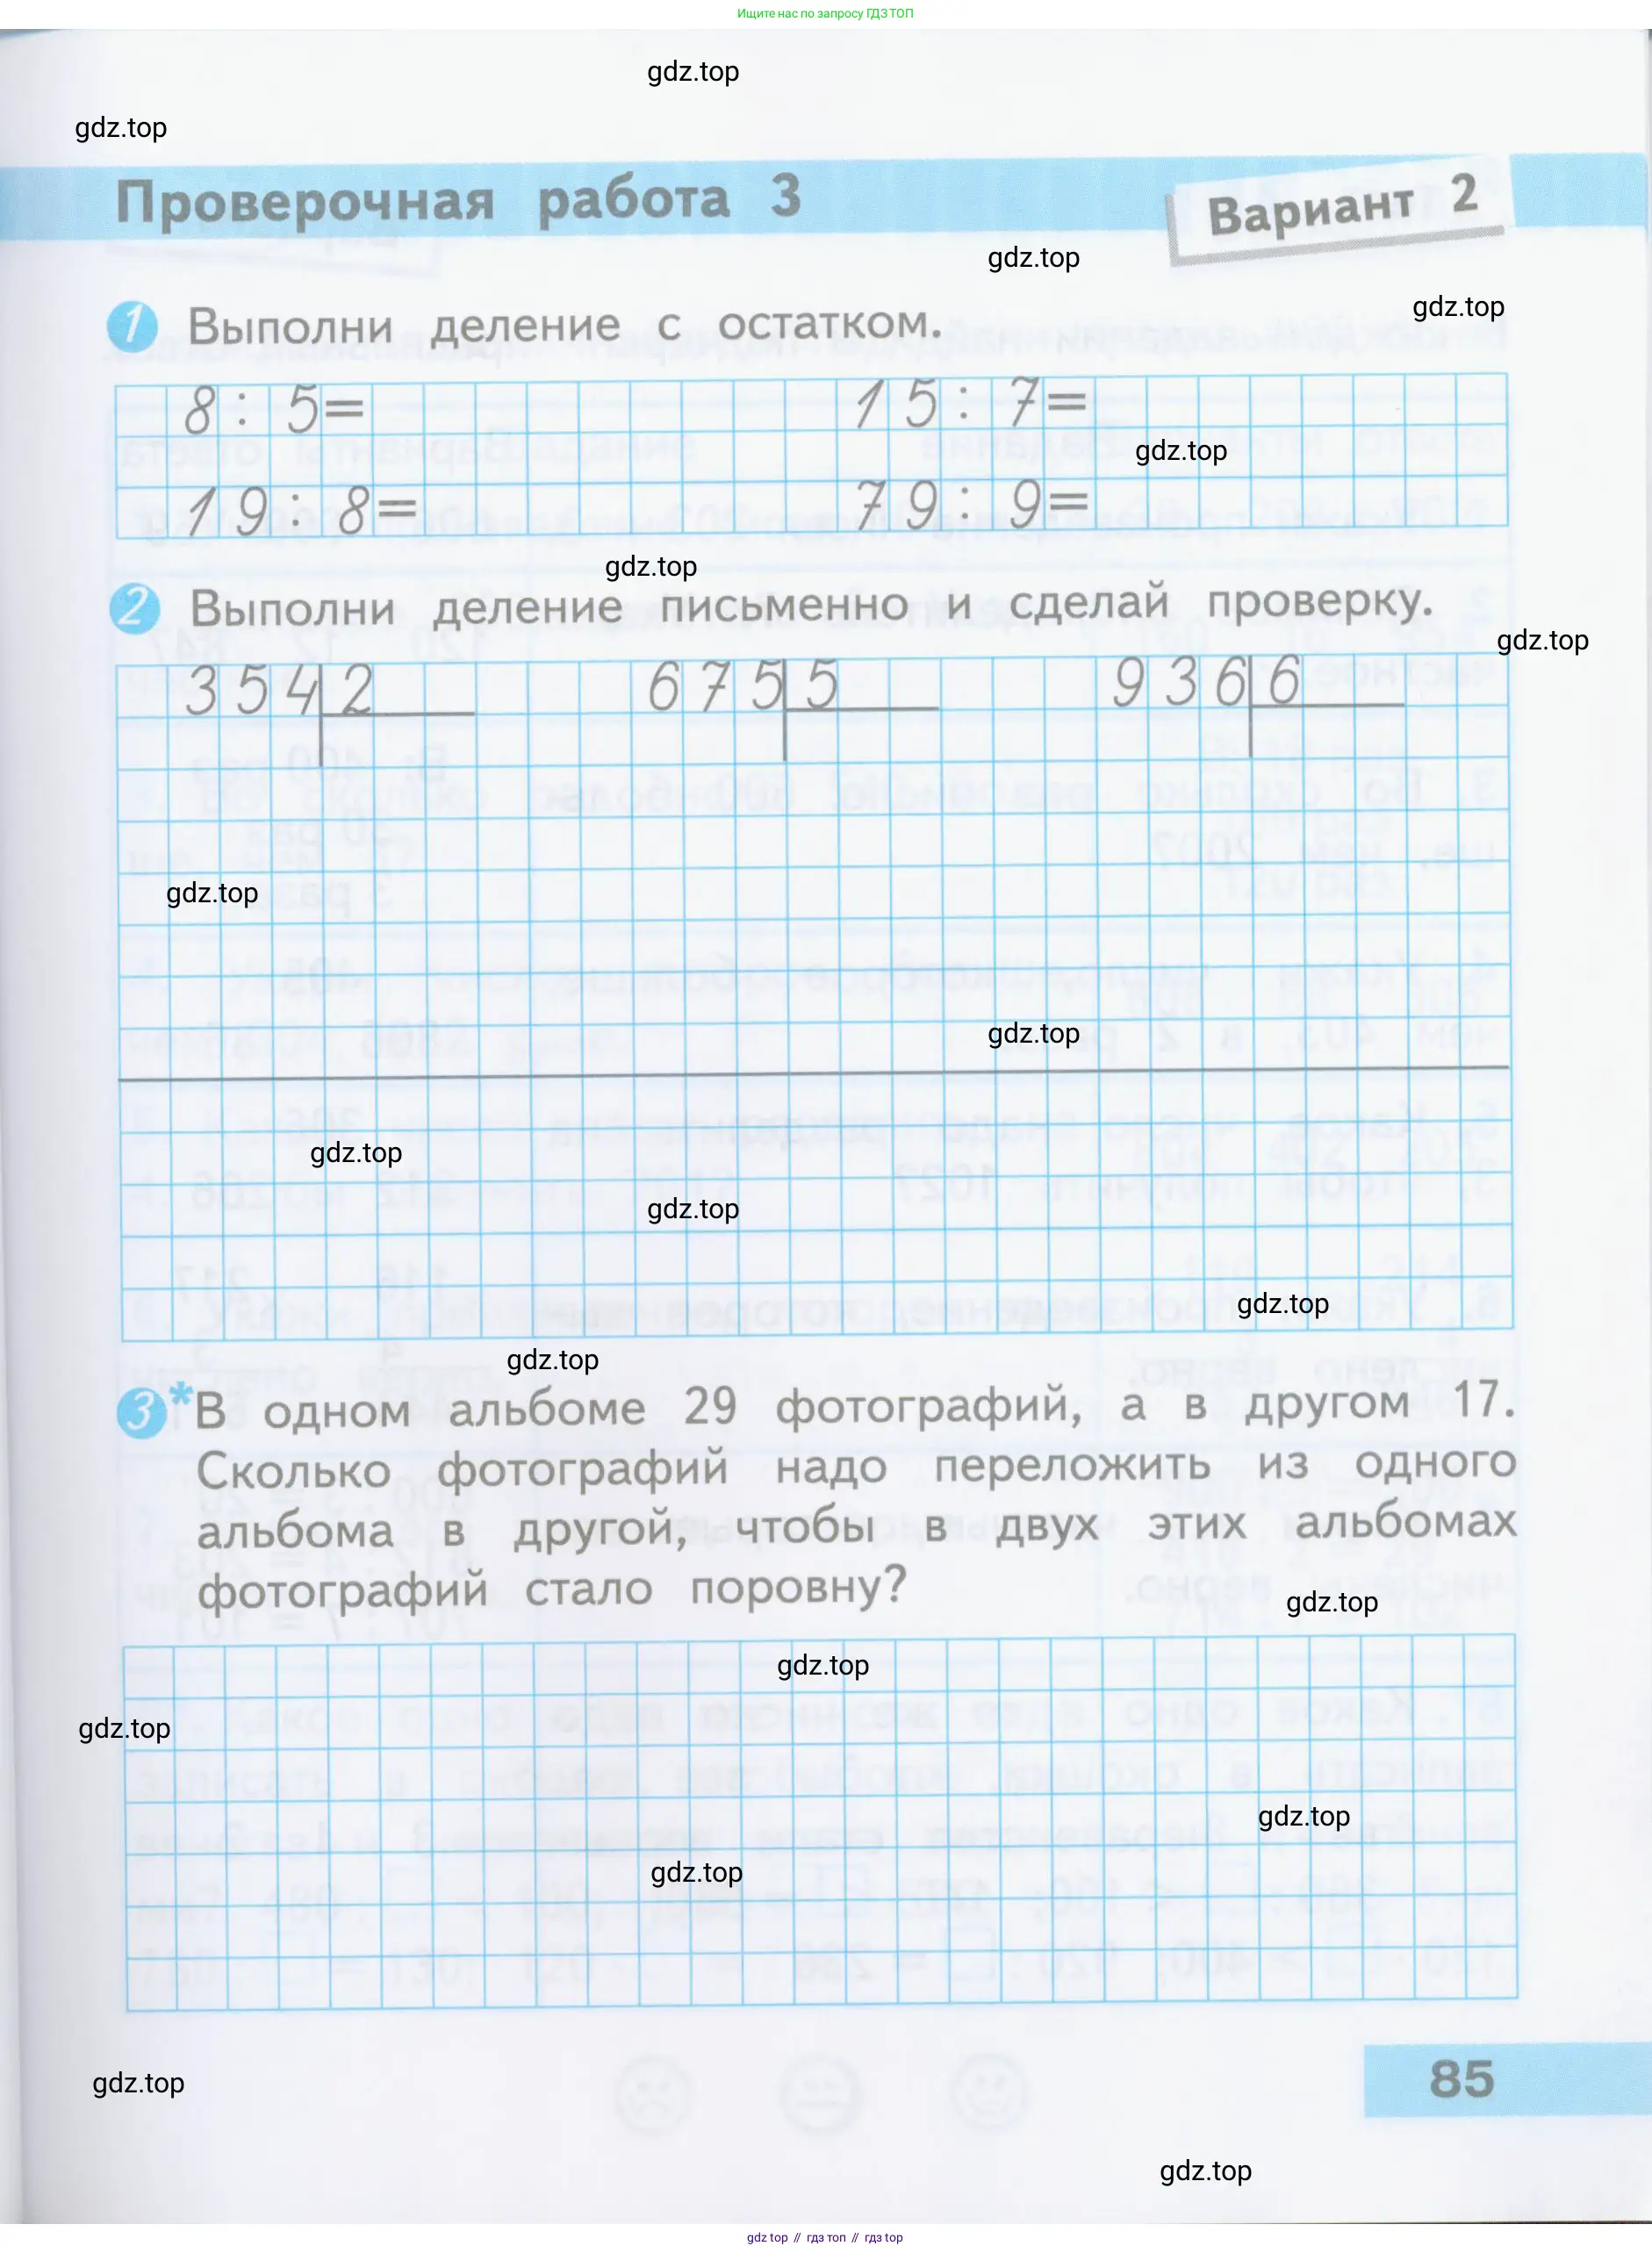 Ищите нас по запросу ГДЗ ТОП
gdz.top
gdz.top
Проверочная работа 3
Вариант 2
gdz.top
gdz.top
1 Выполни деление с остатком.
8 : 5= 15 : 7=
gdz.top
19 : 8= 79 : 9=
gdz.top
2 Выполни деление письменно и сделай проверку.
gdz.top
354 2 675 5 936 6
gdz.top
gdz.top
gdz.top
gdz.top
gdz.top
gdz.top
3* В одном альбоме 29 фотографий, а в другом 17.
Сколько фотографий надо переложить из одного
альбома в другой, чтобы в двух этих альбомах
фотографий стало поровну?
gdz.top
gdz.top
gdz.top
gdz.top
gdz.top
85
gdz.top
gdz.top
gdz top // гдз топ // гдз top